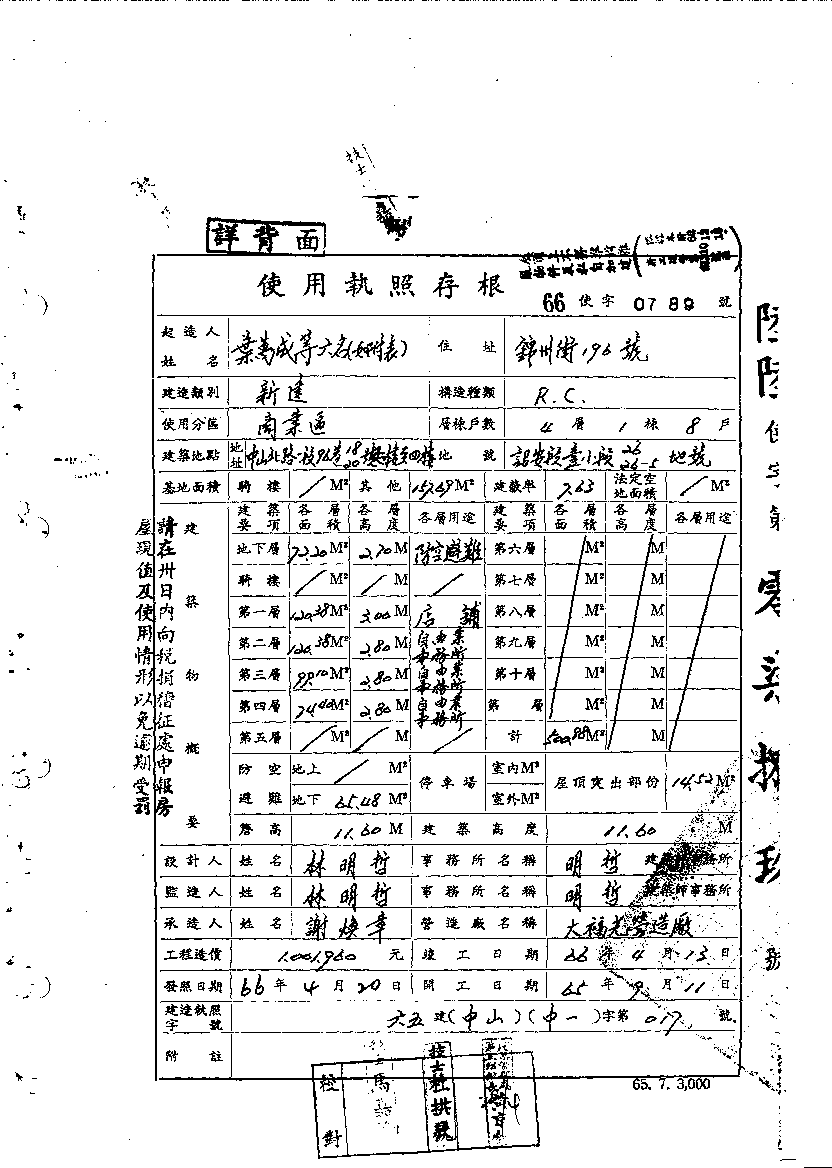 詳背面
使用執照存根
66 使字 0789 號
起造人姓名 葉萬成等六名(如附表) 住址 錦州街196號
建造類別 新建 構造種類 R.C.
使用分區 商業區 層棟戶數 4層1棟8戶
建築地點 地址 中山北路 地號 小段 26 26-5 地號
基地面積 騎樓 / M² 其他 157.69 M² 建蔽率 7.63 法定空地面積 / M²
建築物概要
建築要項 各層面積 各層高度 各層用途 建築要項 各層面積 各層高度 各層用途
地下層 72.20 M² 2.70 M 防空避難 第六層 M² M
騎樓 / M² / M / 第七層 M² M
第一層 120.38 M² 3.00 M 店鋪 第八層 M² M
第二層 120.38 M² 2.80 M 自由業事務所 第九層 M² M
第三層 99.10 M² 2.80 M 自由業事務所 第十層 M² M
第四層 74.40 M² 2.80 M 自由業事務所 第 層 M² M
第五層 / M² / M / 計 500.98 M² M
防空避難 地上 / M² 停車場 室內 M² 屋頂突出部份 14.52 M²
地下 65.48 M² 室外 M²
簷高 11.60 M 建築高度 11.60 M
設計人 姓名 林明哲 事務所名稱 明哲建築師事務所
監造人 姓名 林明哲 事務所名稱 明哲建築師事務所
承造人 姓名 謝煥章 營造廠名稱 大福光營造廠
工程造價 1,001,960 元 竣工日期 66年4月13日
發照日期 66年4月20日 開工日期 65年9月11日
建造執照字號 六五建(中山)(中一)字第017號
附註
請在卅日內向稅捐稽征處申報房
屋現值及使用情形以免逾期受罰
65. 7. 3,000
校對
技士